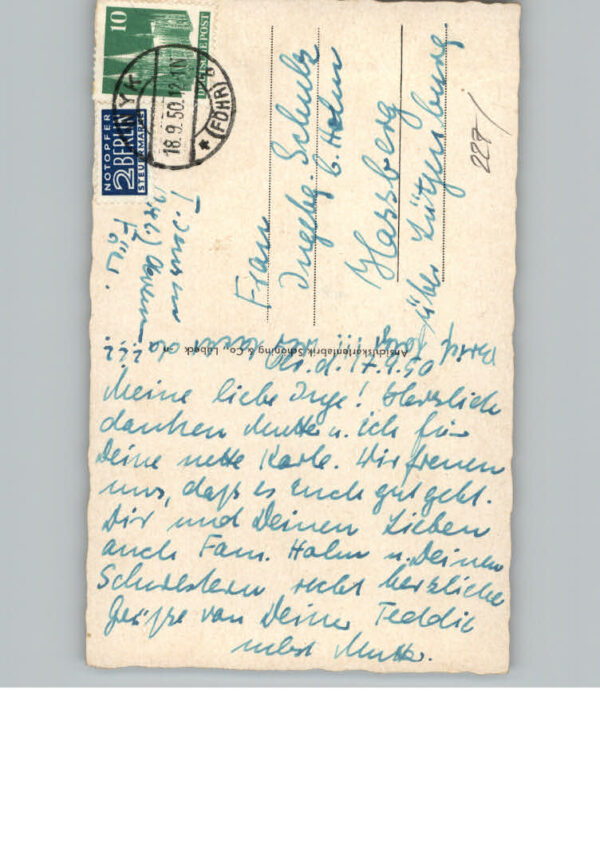 10
DEUTSCHE POST
NOTOPFER
2 BERLIN
STEUERMARKE
WYK
18.9.50.
(FÖHR)
Frau
Ingebg. Schulz
b. Holm
Hassberg
über Lütjenburg.
227/
Ansichtskartenfabrik Schöning & Co., Lübeck
d. 17.9.50
Meine liebe Inge! Herzlich
danken Mutti u. ich für
Deine nette Karte. Wir freuen
uns, daß es Euch gut geht.
Dir und Deinen Lieben
auch Fam. Holm u. Deinen
Schwestern recht herzliche
Grüße von Deiner Teddie
nebst Mutti.